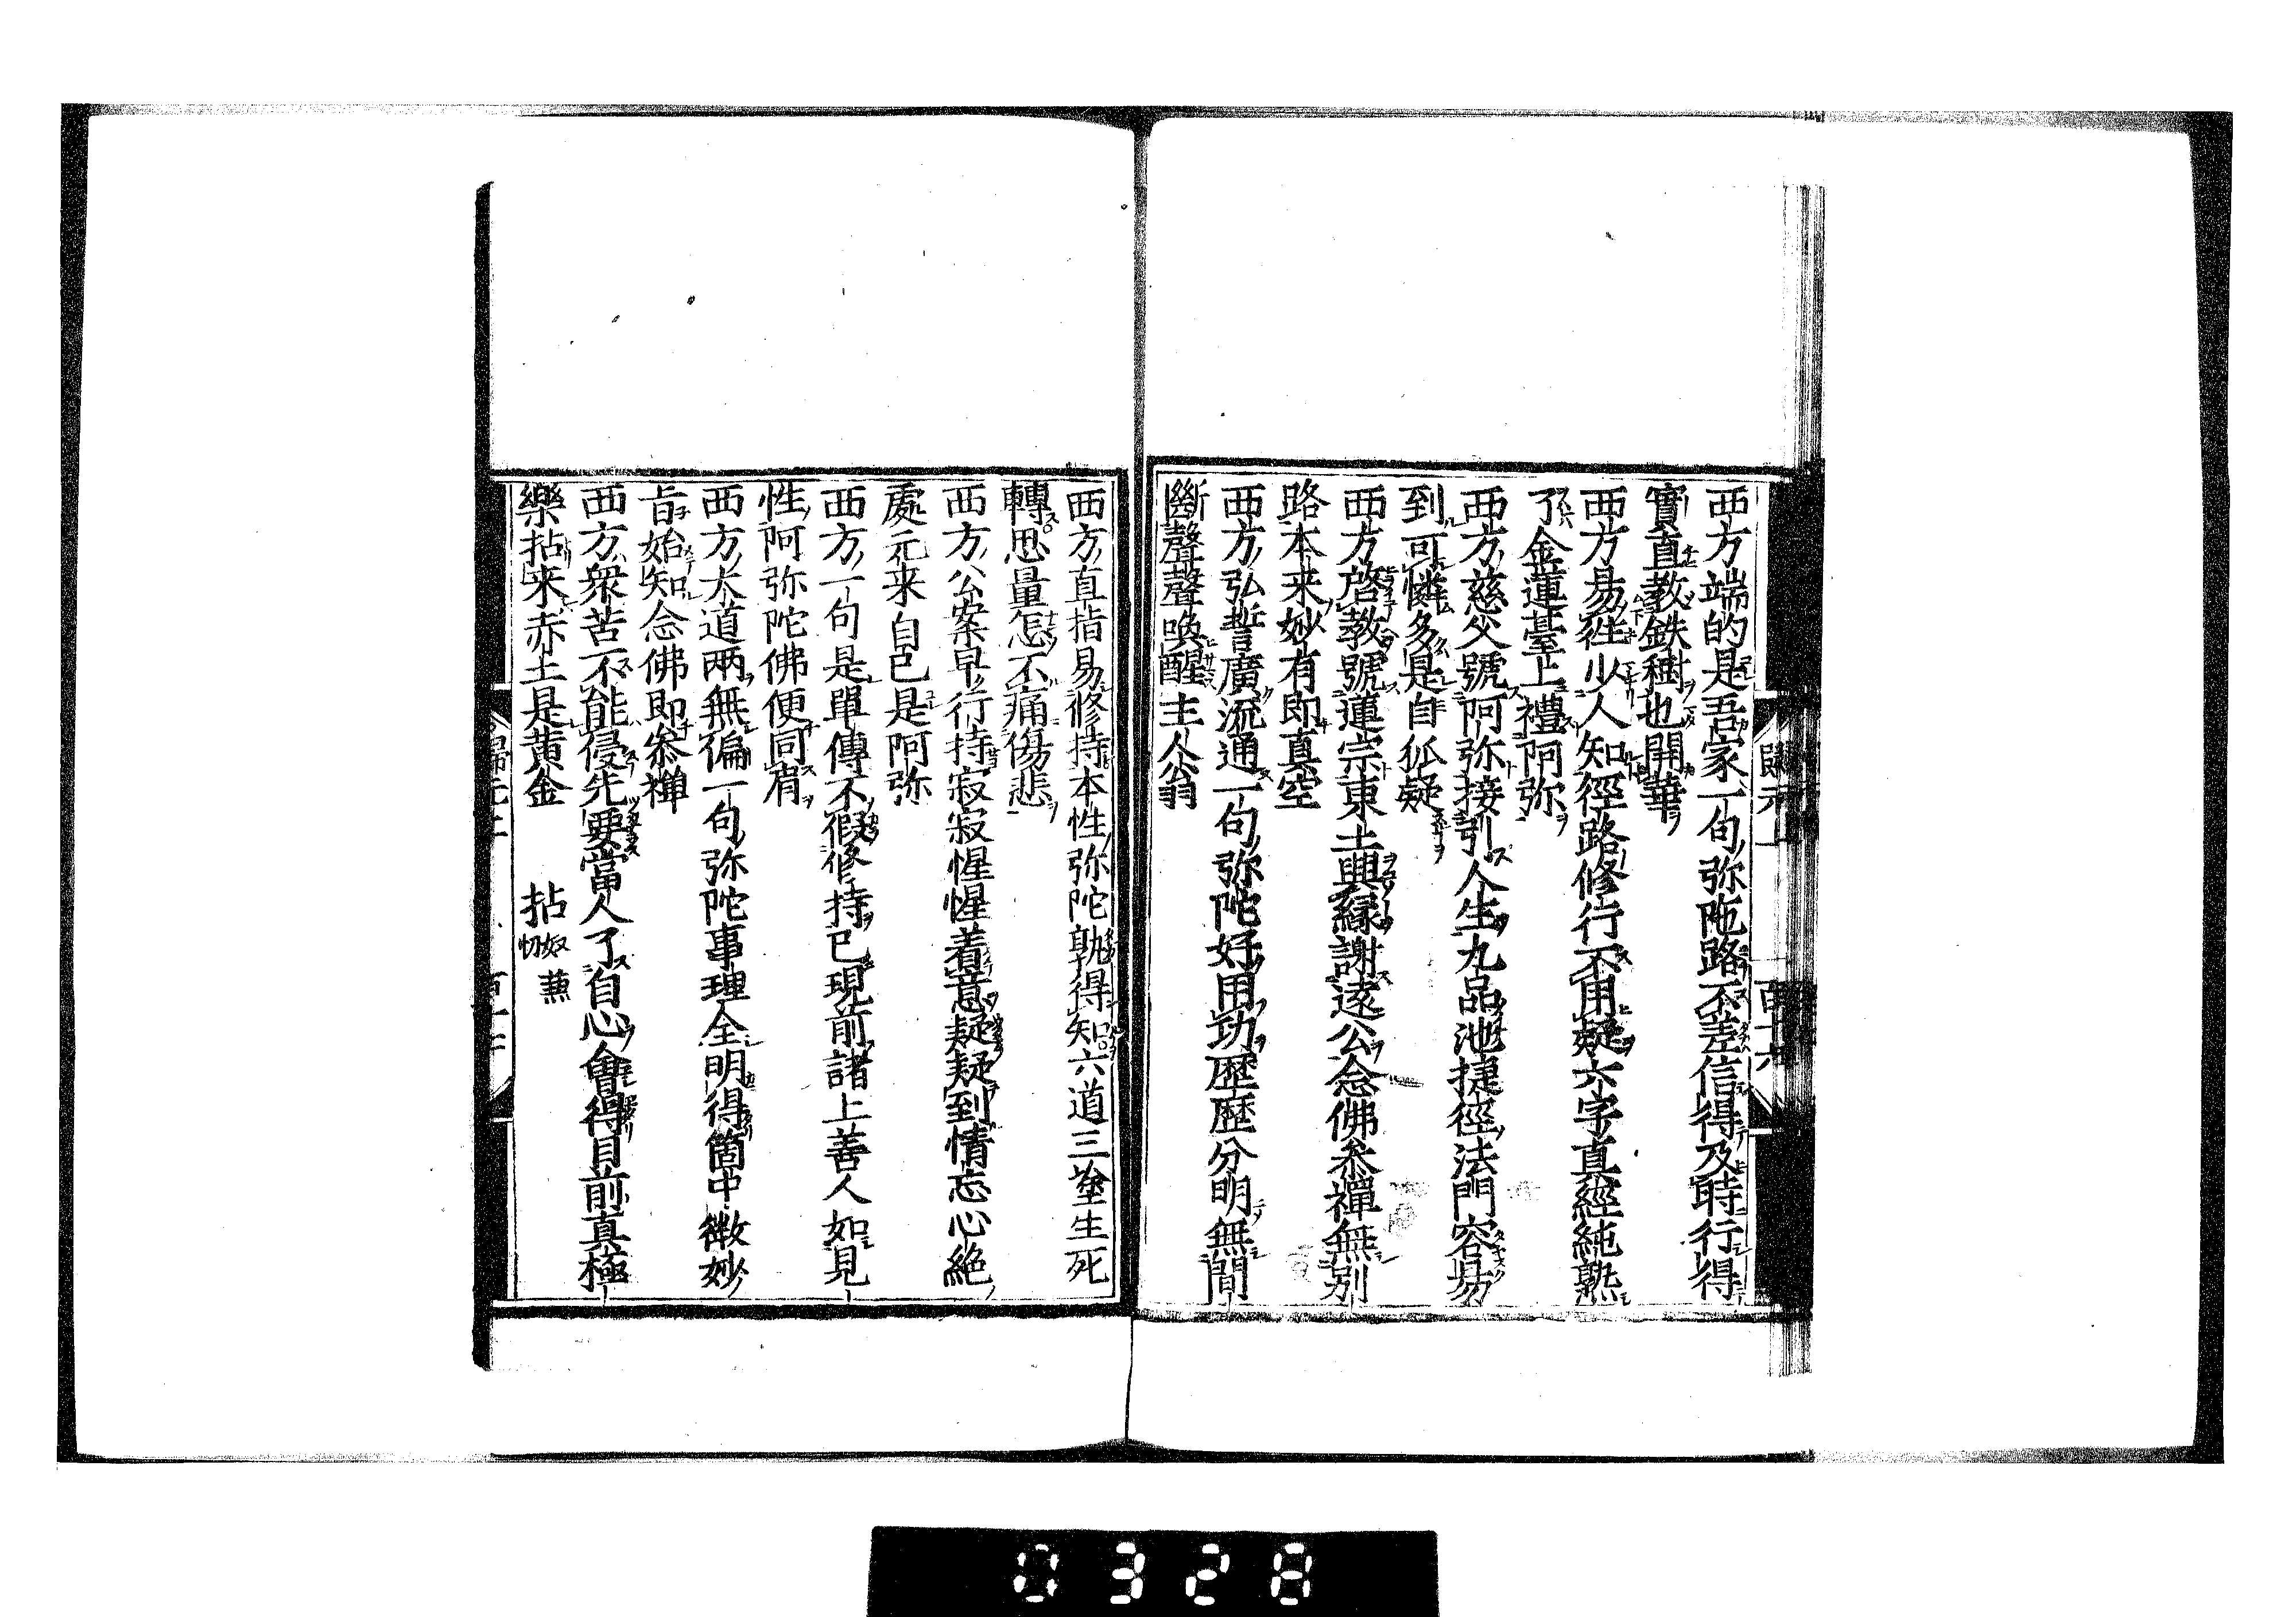 西方端的是吾家一句弥陁路不差信得及時行得
實直教鉄樹也開華
西方易徃少人知徑路修行不用疑六字真經純熟
了金蓮臺上禮阿弥
西方慈父號阿弥接引人生九品池捷徑法門容易
到可憐多是自狐疑
西方啓教號蓮宗東土興縁謝遠公念佛叅禪無别
路本来妙有即真空
西方弘誓廣流通一句弥陀好用功歴歴分明無間
斷聲聲喚醒主人翁
西方直指易修持本性弥陀孰得知六道三塗生死
轉思量怎不痛傷悲
西方公案早行持寂寂惺惺着意疑疑到情忘心絶
處元来自己是阿弥
西方一句是單傳不假修持已現前諸上善人如見
性阿弥陀佛便同肩
西方大道兩無偏一句弥陀事理全明得箇中微妙
旨始知念佛即叅禅
西方衆苦不能侵先要當人了自心會得目前真極
樂拈来赤土是黄金
拈 奴蒹切
0328